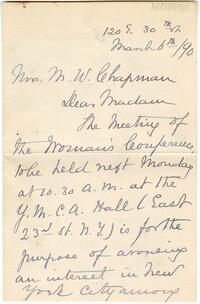 A00180150
120 E. 30th St.
March 6th/90
Mrs. M. W. Chapman
Dear Madam
The Meeting of
the Womans Conference,
to be held next Monday
at 10.30 A.M. at the
Y.M.C.A. Hall (East
23rd St. N.Y.) is for the
purpose of arousing
an interest in New
York City among